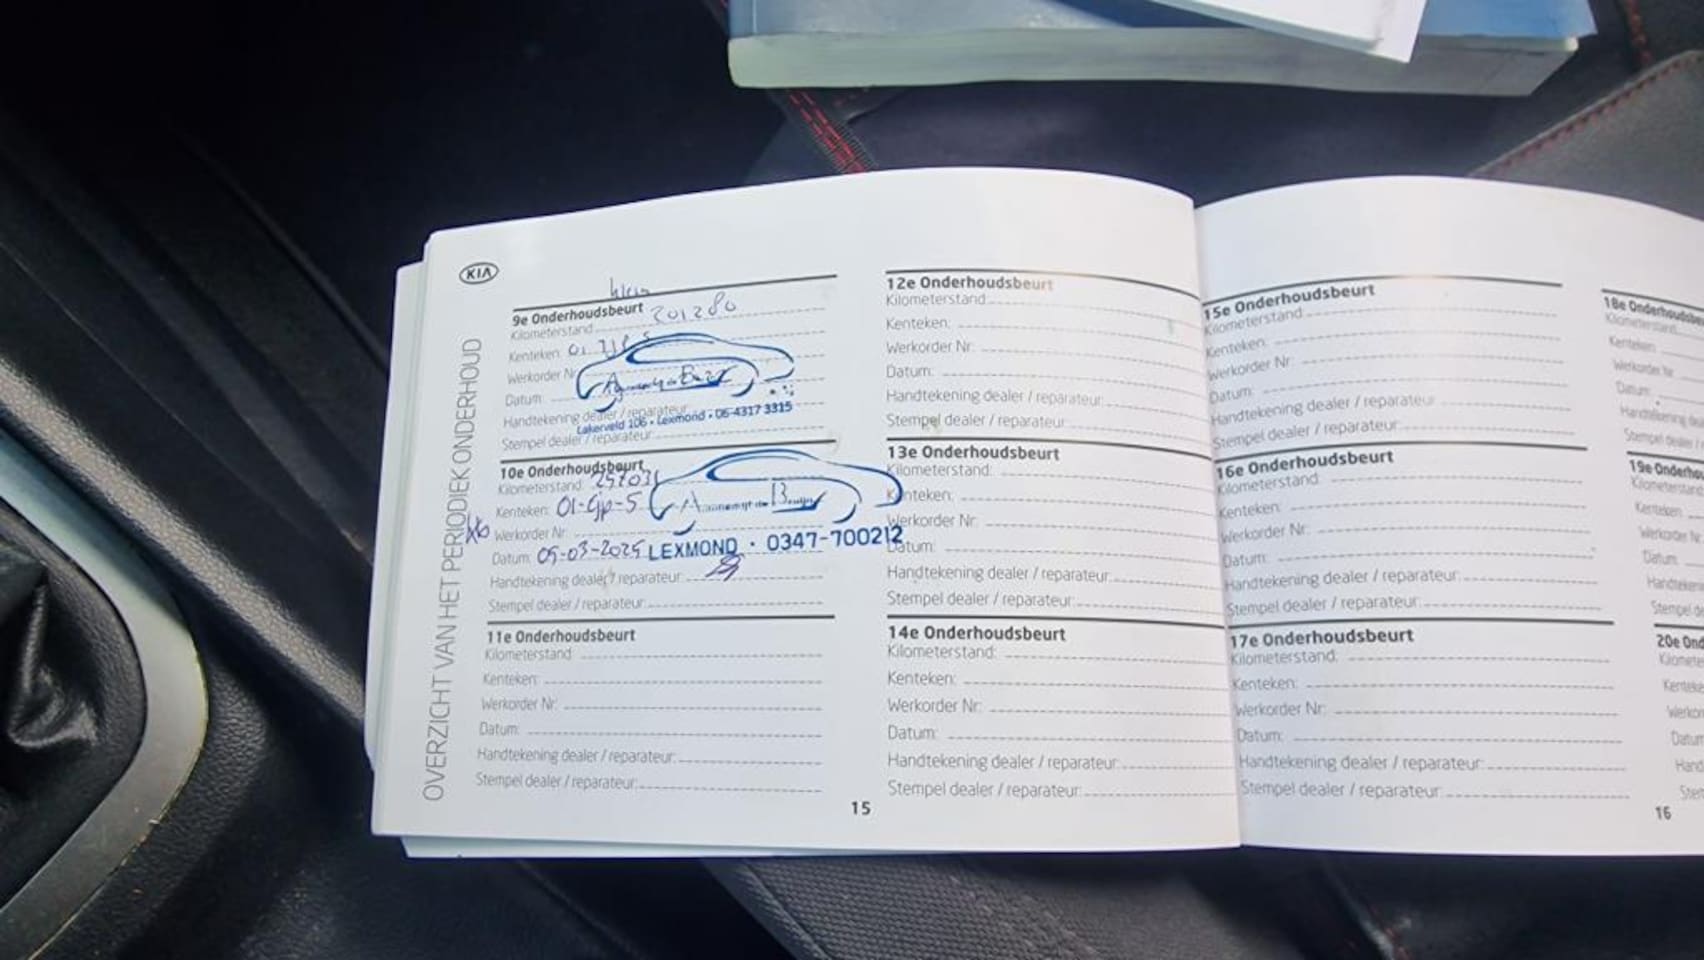 KIA
OVERZICHT VAN HET PERIODIEK ONDERHOUD
klein
9e Onderhoudsbeurt
Kilometerstand 201280
Kenteken:
Werkorder Nr:
Datum:
Handtekening dealer / reparateur:
Lakerveld 106 • Lexmond • 06-4317 3315
Stempel dealer / reparateur:
10e Onderhoudsbeurt
Kilometerstand:
Kenteken: 01-Gjp-5
Werkorder Nr:
Datum: 05-03-2025 LEXMOND · 0347-700212
Handtekening dealer / reparateur:
Stempel dealer / reparateur:
11e Onderhoudsbeurt
Kilometerstand:
Kenteken:
Werkorder Nr:
Datum:
Handtekening dealer / reparateur:
Stempel dealer / reparateur:
12e Onderhoudsbeurt
Kilometerstand
Kenteken:
Werkorder Nr:
Datum:
Handtekening dealer / reparateur:
Stempel dealer / reparateur:
13e Onderhoudsbeurt
Kilometerstand:
Kenteken:
Werkorder Nr:
Datum:
Handtekening dealer / reparateur:
Stempel dealer / reparateur:
14e Onderhoudsbeurt
Kilometerstand:
Kenteken:
Werkorder Nr:
Datum:
Handtekening dealer / reparateur:
Stempel dealer / reparateur:
15
15e Onderhoudsbeurt
Kilometerstand:
Kenteken:
Werkorder Nr:
Datum:
Handtekening dealer / reparateur:
Stempel dealer / reparateur:
16e Onderhoudsbeurt
Kilometerstand:
Kenteken:
Werkorder Nr:
Datum:
Handtekening dealer / reparateur:
Stempel dealer / reparateur:
17e Onderhoudsbeurt
Kilometerstand:
Kenteken:
Werkorder Nr:
Datum:
Handtekening dealer / reparateur:
Stempel dealer / reparateur:
18e Onderhoudsbe
Kilometerstand:
Kenteken:
Werkorder Nr:
Datum:
Handtekening dea
Stempel dealer
19e Onderhou
Kilometerstand
Kenteken:
Werkorder Nr:
Datum:
Handteken
Stempel de
20e Ond
Kilomete
Kenteke
Werkor
Datum
Hand
Stem
16